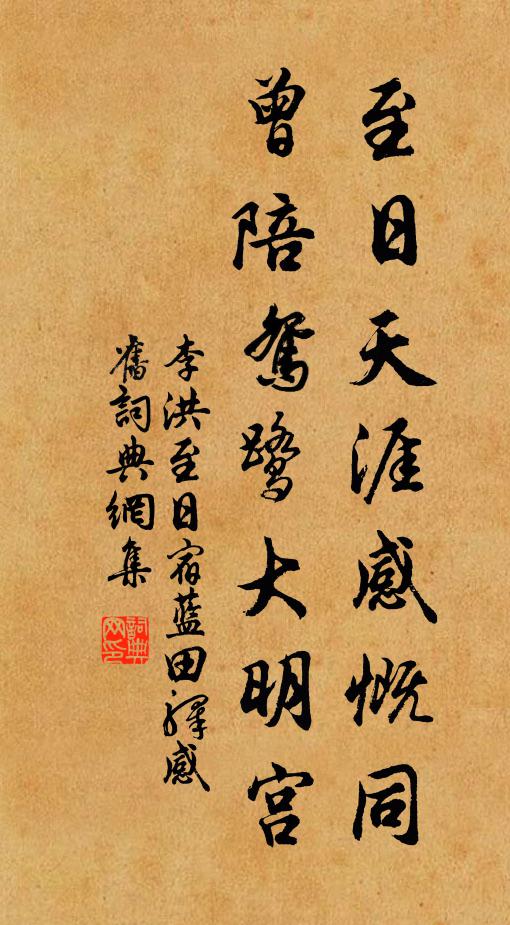 至日天涯感慨同
曾陪鴛鷺大明宮
李洪至日宿藍田驛感
舊詞典網集
詞典
网印